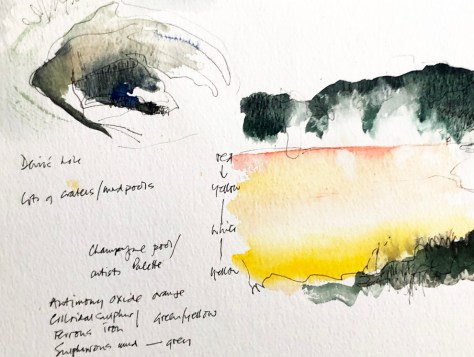 Devil's hole
lots of craters/mudpools
Champagne pool/
artists Palette
Antimony oxide orange
Colloidal sulphur/ Green/yellow
Ferrous iron
Sulphurous mud — grey
red
yellow
white
yellow